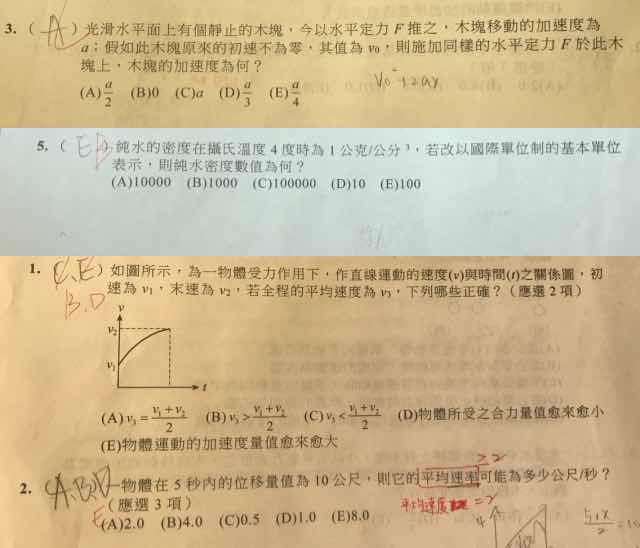 3. ( A ) 光滑水平面上有個靜止的木塊，今以水平定力 F 推之，木塊移動的加速度為
a；假如此木塊原來的初速不為零，其值為 v₀，則施加同樣的水平定力 F 於此木
塊上，木塊的加速度為何？
(A) a/2 (B)0 (C)a (D) a/3 (E) a/4
5. ( E B ) 純水的密度在攝氏溫度 4 度時為 1 公克/公分³，若改以國際單位制的基本單位
表示，則純水密度數值為何？
(A)10000 (B)1000 (C)100000 (D)10 (E)100
1. ( C、E ) 如圖所示，為一物體受力作用下，作直線運動的速度(v)與時間(t)之關係圖，初
B、D 速為 v₁，末速為 v₂，若全程的平均速度為 v₃，下列哪些正確？（應選 2 項）
v
v₂
v₁
t
(A) v₃ = (v₁ + v₂)/2 (B) v₃ > (v₁ + v₂)/2 (C) v₃ < (v₁ + v₂)/2 (D)物體所受之合力量值愈來愈小
(E)物體運動的加速度量值愈來愈大
≥2
2. ( A、B、D 一物體在 5 秒內的位移量值為 10 公尺，則它的平均速率可能為多少公尺/秒？
（應選 3 項） 平均速度 = 2
E (A)2.0 (B)4.0 (C)0.5 (D)1.0 (E)8.0